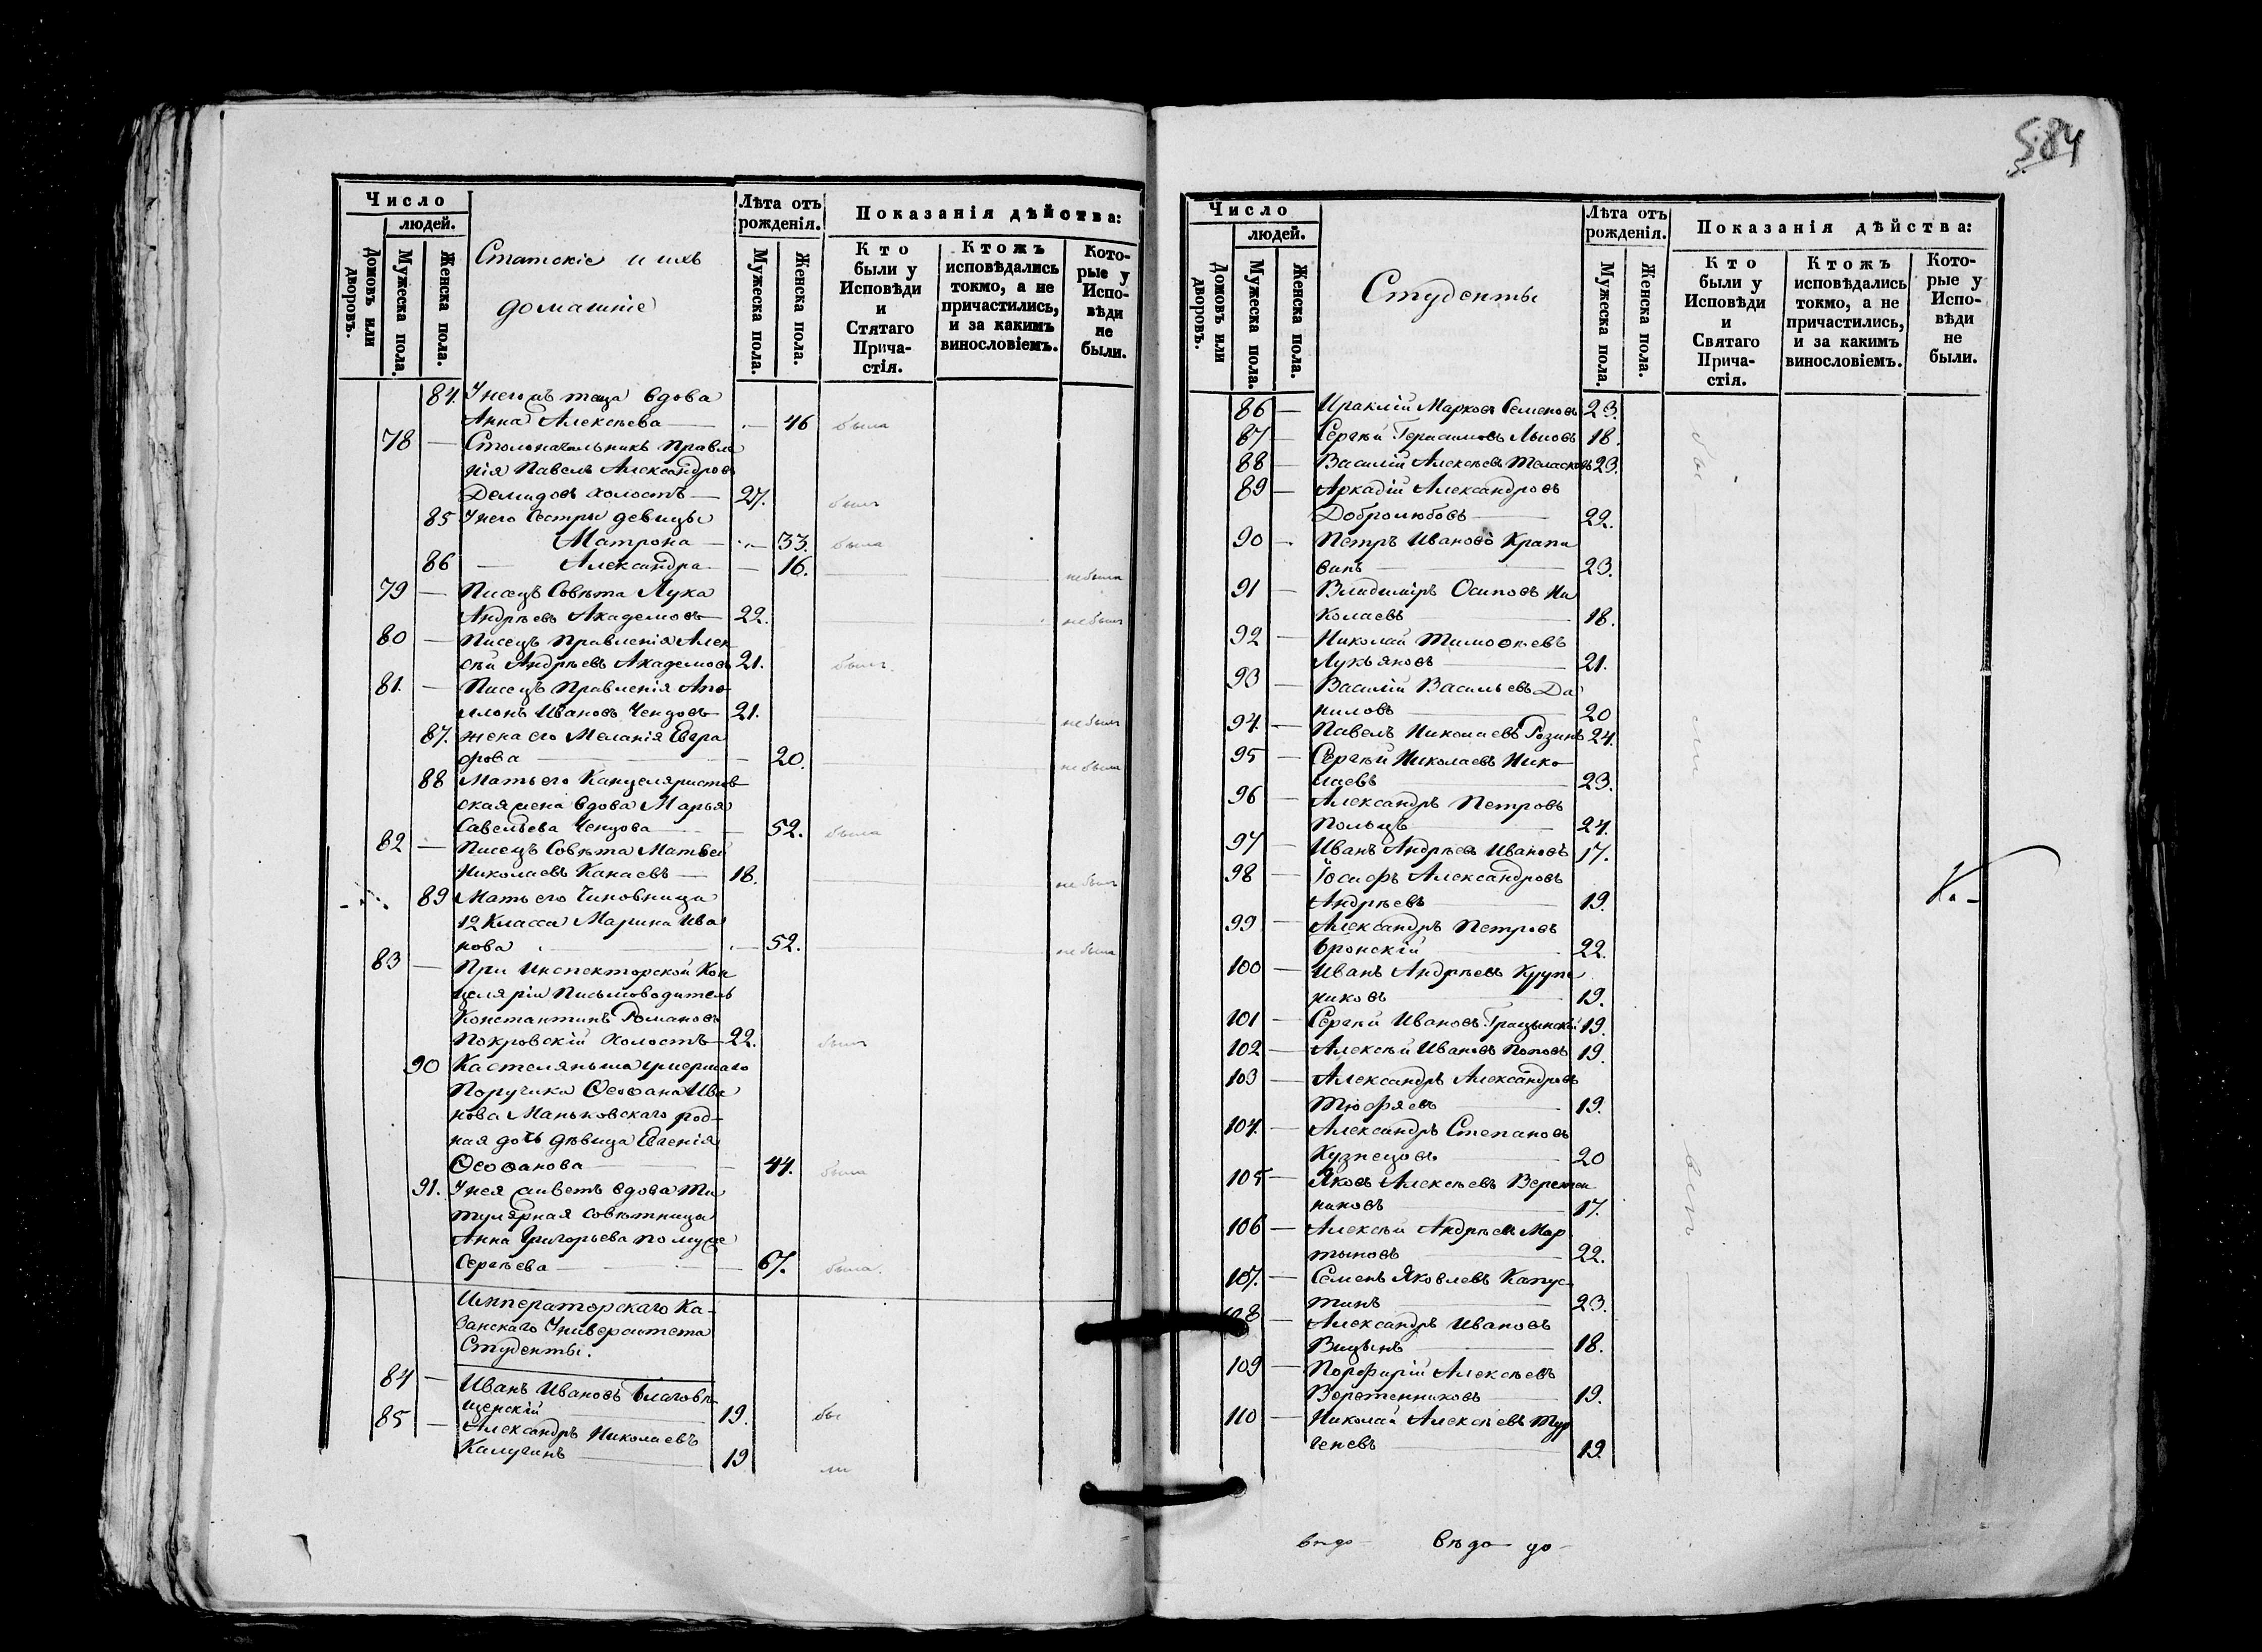 584
Число
людей.
Домовъ или дворовъ.
Мужеска пола.
Женска пола.
Статскіе и ихъ
домашніе
Лѣта отъ
рожденія.
Мужеска пола.
Женска пола.
Показанія дѣйства:
Кто
были у
Исповѣди
и
Стятаго
Прича-
стія.
Ктожъ
исповѣдались
токмо, а не
причастились,
и за какимъ
винословіемъ.
Кото-
рые у
Испо-
вѣди
не
были.
84. У него же теща вдова
Анна Алексѣева — 46 была
78 — Столоначальникъ Правле
нія Павелъ Александровъ
Демидовъ холостъ — 27. былъ
85 У него сестры девицы
Матрона — 33. была
86 — Александра — 16. не была
79 — Писецъ Совѣта Лука
Андрѣевъ Академовъ — 22. не былъ
80 — Писецъ Правленія Алек
сѣй Андрѣевъ Академовъ 21. былъ
81. — Писецъ Правленія Апо
лонъ Ивановъ Ченцовъ — 21. не былъ
87. жена его Меланія Евгра
фова — 20. не была
88 Мать его Канцеляристов
ская жена вдова Марья
Савельева Ченцова — 52. была
82 — Писецъ Совѣта Матвей
Николаевъ Канаевъ — 18. не былъ
89 Мать его Чиновница
12 Класса Марина Ива
нова — 52. не была
83 — При Инспекторской Кан
целяріи Письмоводитель
Константинъ Романовъ
Покровскій холостъ — 22. былъ
90 Кастелянша умершаго
Поручика Ѳеофана Ива
нова Маньковскаго род-
ная дочь дѣвица Евгенія
Ѳеофанова — 44. была
91. У нея живетъ вдова Ти
тулярная совѣтница
Анна Григорьева по муже
Сергѣева — 67. была.
Императорскаго Ка-
занскаго Университета
Студенты.
84 — Иванъ Ивановъ Благовѣ
щенскій 19. бы
85 — Александръ Николаевъ
Калугинъ — 19 ли
Число
людей.
Домовъ или дворовъ.
Мужеска пола.
Женска пола.
Студенты
Лѣта отъ
рожденія.
Мужеска пола.
Женска пола.
Показанія дѣйства:
Кто
были у
Исповѣди
и
Святаго
Прича-
стія.
Ктожъ
исповѣдались
токмо, а не
причастились,
и за какимъ
винословіемъ.
Кото-
рые у
Испо-
вѣди
не
были.
86 — Ираклій Марковъ Семеновъ 23.
87 — Сергѣй Герасимовъ Львовъ 18.
88 — Василій Алексѣевъ 23.
89 — Аркадій Александровъ
Добролюбовъ — 22.
90 — Петръ Ивановъ Крапи
винъ — 23.
91 — Владиміръ Осиповъ Ни
колаевъ — 18.
92 — Николай Тимоѳѣевъ
Лукьяновъ — 21.
93 — Василій Васильевъ Да
ниловъ — 20
94. — Павелъ Николаевъ Розинъ 24.
95 — Сергѣй Николаевъ Нико
лаевъ — 23.
96 — Александръ Петровъ
Польцъ — 24.
97 — Иванъ Андрѣевъ Ивановъ 17.
98 — Іосифъ Александровъ
Андрѣевъ — 19.
99 — Александръ Петровъ
Бронскій — 22.
100 — Иванъ Андрѣевъ Крупе
никовъ — 19.
101 — Сергѣй Ивановъ Грацынскій 19.
102 — Алексѣй Ивановъ Поповъ 19.
103 — Александръ Александровъ
Тюфяевъ — 19.
104. — Александръ Степановъ
Кузнецовъ — 20
105 — Яковъ Алексѣевъ Веретен
никовъ — 17.
106 — Алексѣй Андрѣевъ Мар
тыновъ — 22.
107. — Семенъ Яковлевъ Капус
тинъ — 23.
108 — Александръ Ивановъ
Вицынъ — 18.
109 — Порфирій Алексѣевъ
Веретенниковъ — 19.
110 — Николай Алексѣевъ Тур
геневъ — 19.
вѣдо вѣдо до